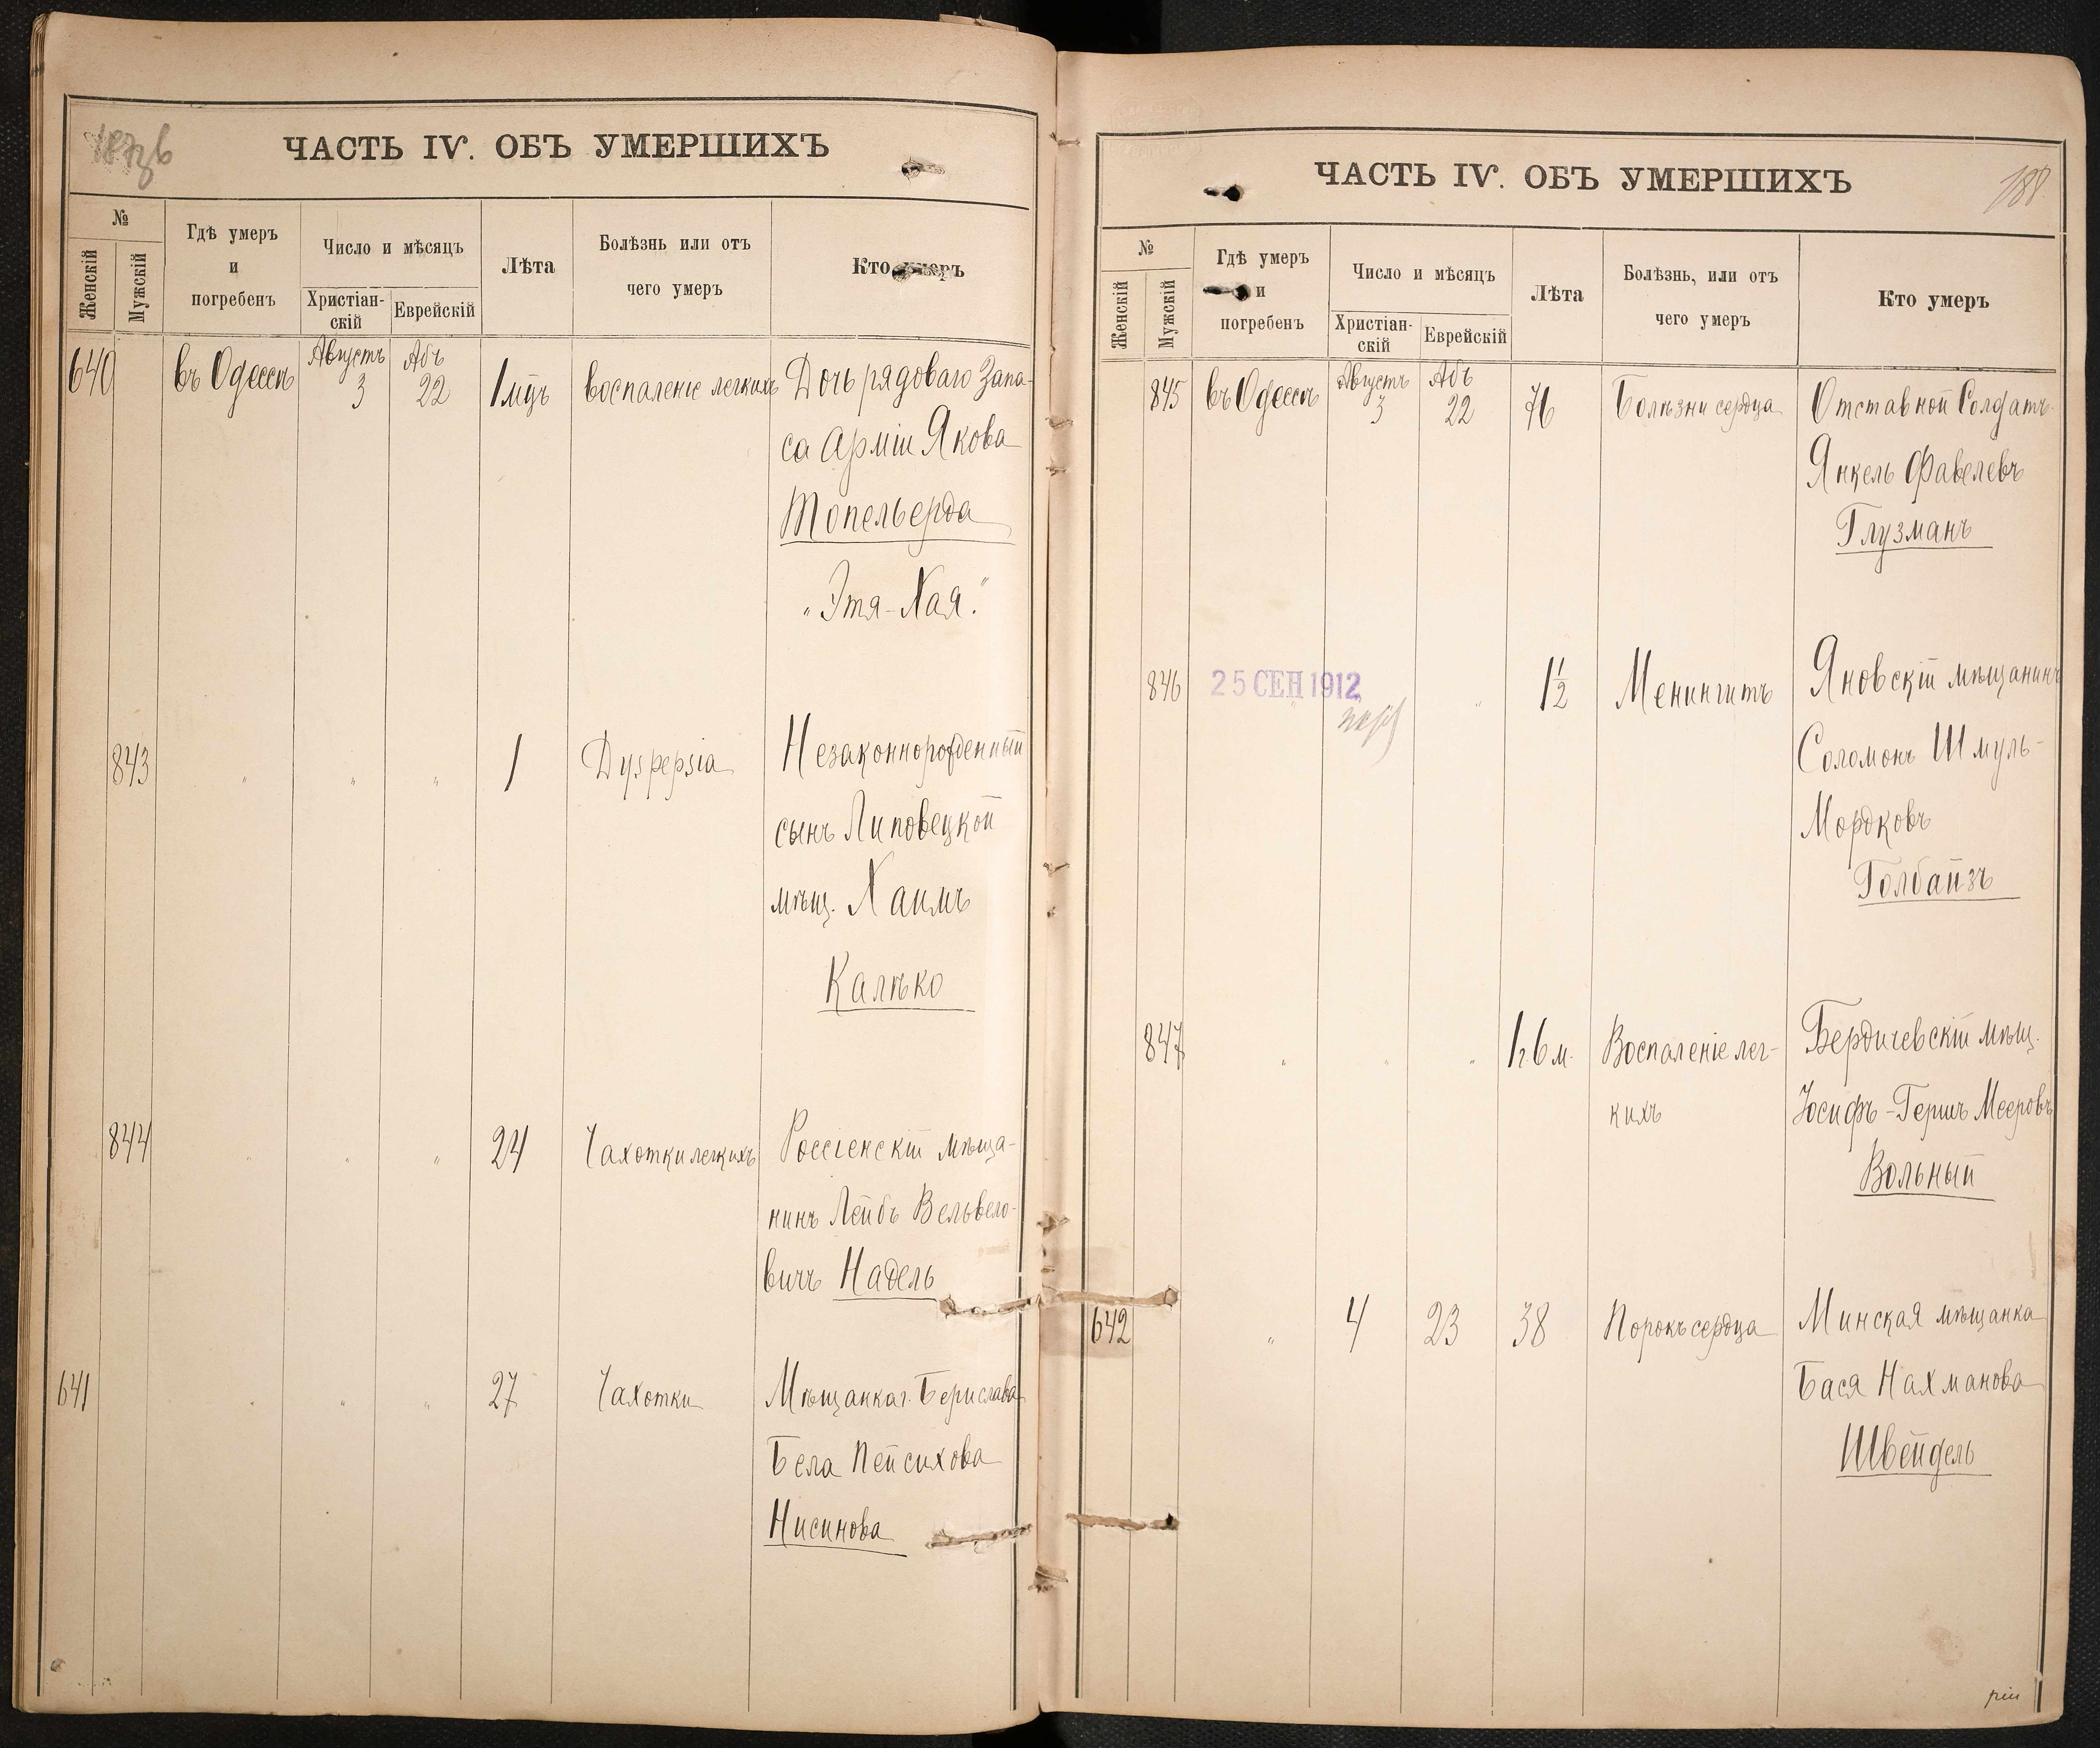 ЧАСТЬ IV. ОБЪ УМЕРШИХЪ
№
Женскій
Мужскій
Гдѣ умеръ
и
погребенъ
Число и мѣсяцъ
Христіан-
скій
Еврейскій
Лѣта
Болѣзнь или отъ
чего умеръ
Кто умеръ
640 въ Одессѣ Августъ 3 Абъ 22 1 мѣцъ воспаленіе легкихъ Дочь рядоваго Запа-
са Арміи Якова
Топельберда
„Этя-Хая."
843 " " " 1 Dyspepsia Незаконнорожденный
сынъ Липовецкой
мѣщ. Хаимъ
Калѣко
844 " " " 24 Чахотки легкихъ Россіенскій мѣща-
нинъ Лейбъ Вельвело-
вичъ Надель
641 " " " 27 Чахотки Мѣщанка г. Берислава
Бела Пейсихова
Нисинова
ЧАСТЬ IV. ОБЪ УМЕРШИХЪ
188
№
Женскій
Мужскій
Гдѣ умеръ
и
погребенъ
Число и мѣсяцъ
Христіан-
скій
Еврейскій
Лѣта
Болѣзнь, или отъ
чего умеръ
Кто умеръ
845 въ Одессѣ Августъ 3 Абъ 22 76 Болѣзни сердца Отставной Солдатъ
Янкель Фавелевъ
Глузманъ
846 25 СЕН 1912 " " 1½ Менингитъ Яновскій мѣщанинъ
Соломонъ Шмуль-
Мордковъ
Голбайзъ
847 " " " 1 г. 6 м. Воспаленіе лег- Бердичевскій мѣщ.
кихъ Іосифъ-Гершъ Мееровъ
Вольный
642 " 4 23 38 Порокъ сердца Минская мѣщанка
Бася Нахманова
Швейдель